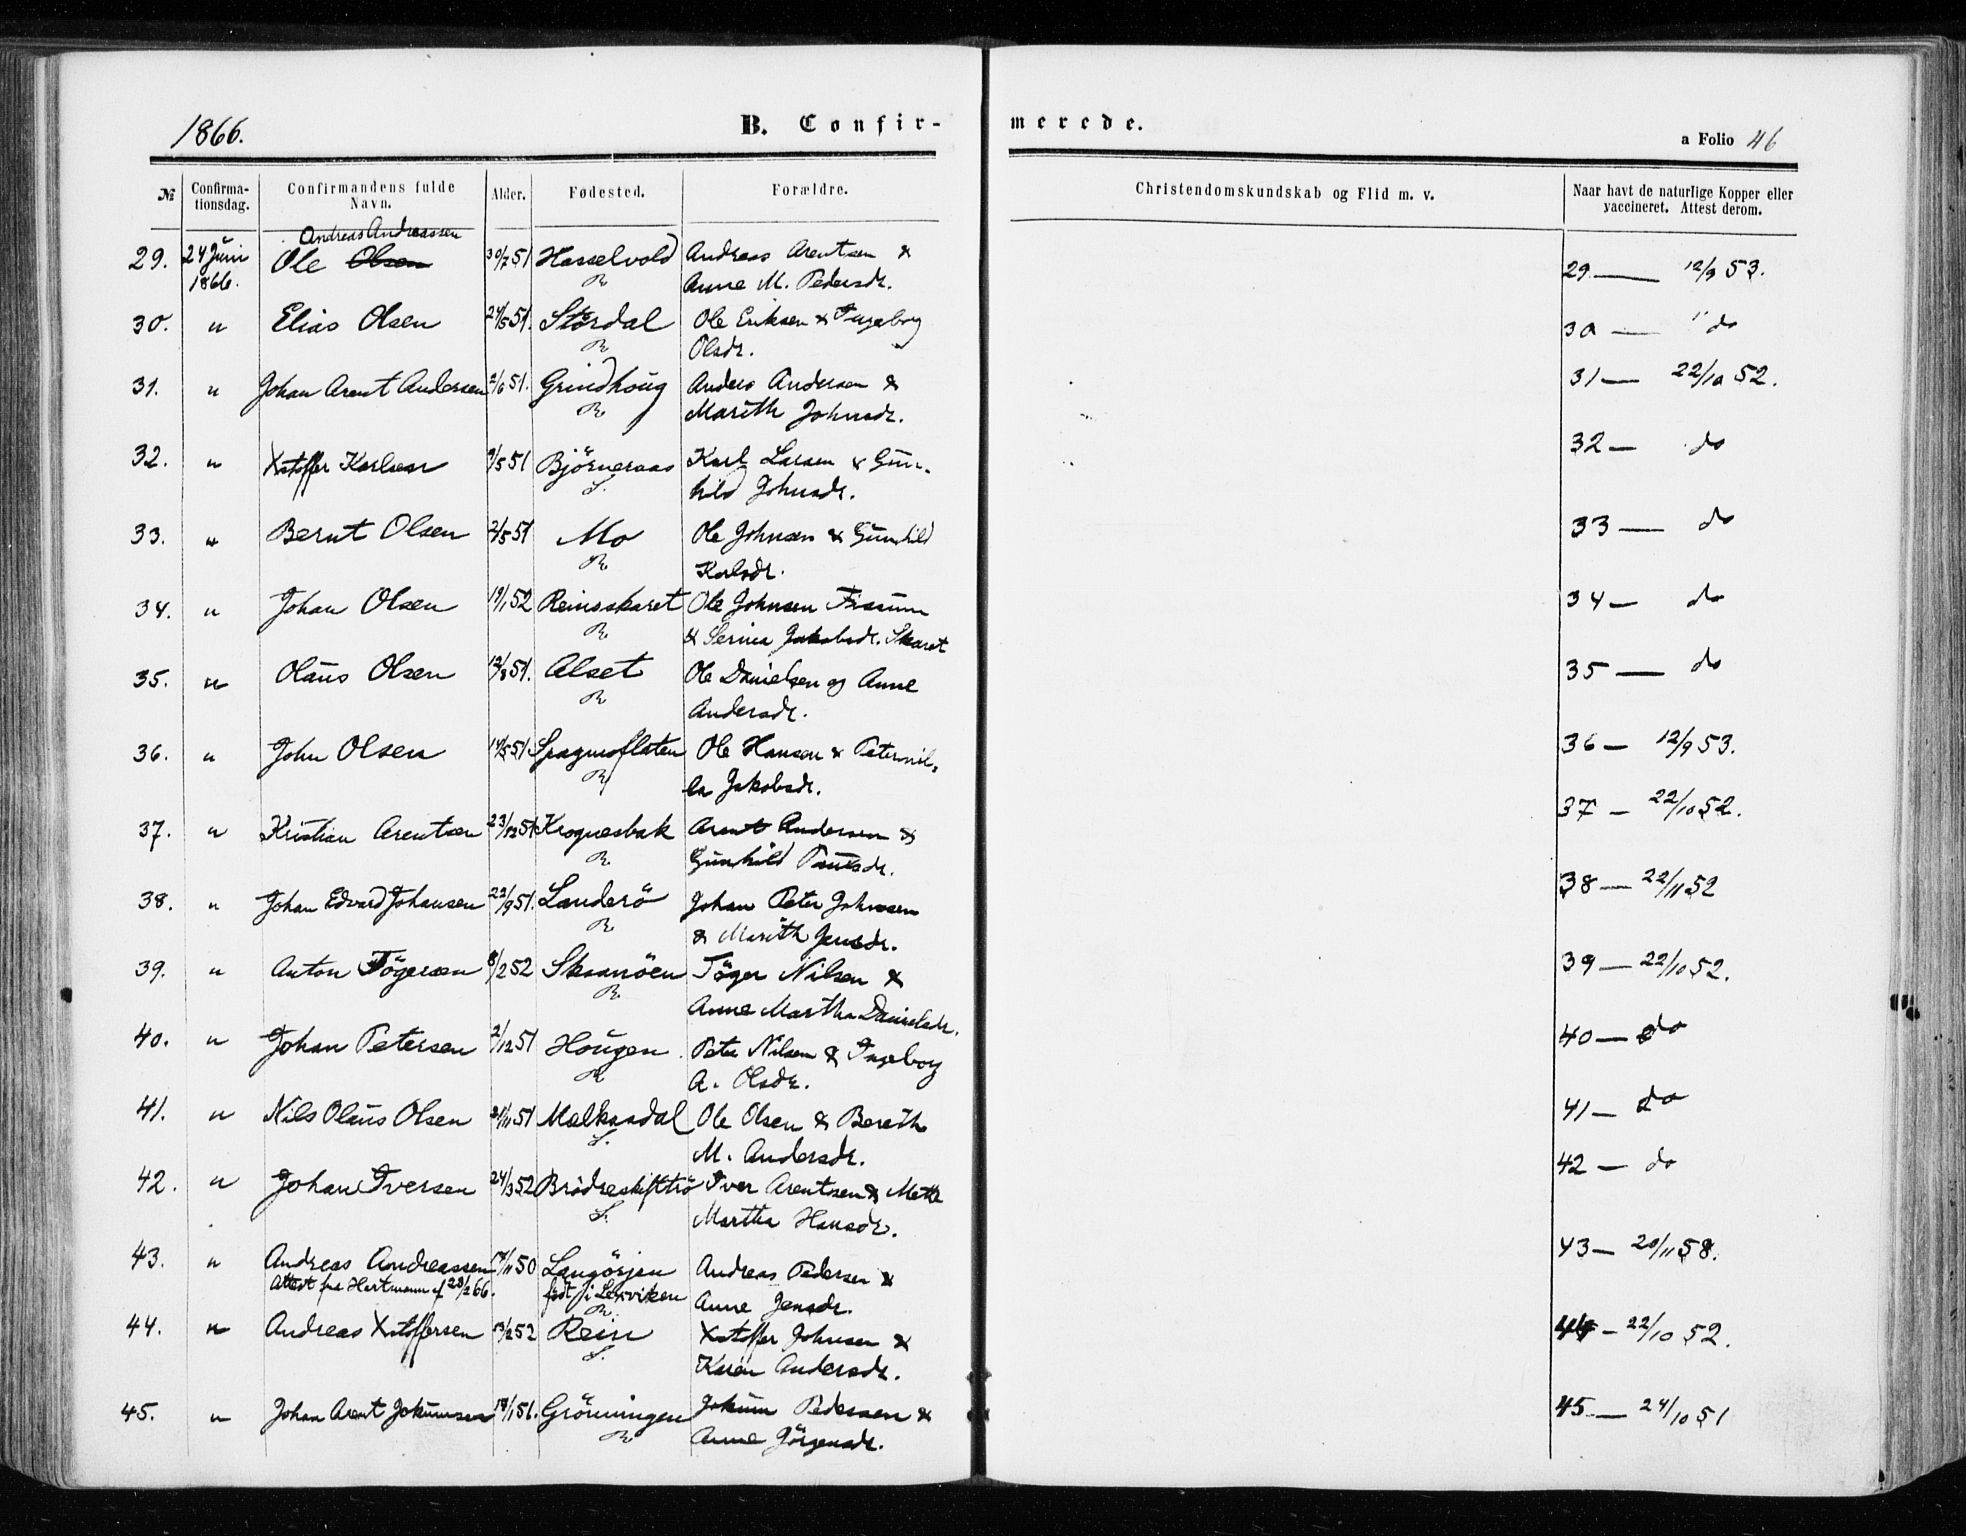 1866. B. Confir- merede. a Folio 46
№ Confirma-tionsdag. Confirmandens fulde Navn. Alder. Fødested. Forældre. Christendomskundskab og Flid m. v. Naar havt de naturlige Kopper eller vaccineret. Attest derom.
Andreas Andreassen
29. 24 Juni Ole Olsen 30/7 51 Hasselvold Andreas Arentsen & 29 — 12/9 53.
1866. R. Anne M. Pedersdr.
30. " Elias Olsen 24/5 51. Stördal Ole Eriksen & Ingeborg 30 — " do
R. Olsdr.
31. " Johan Arent Andersen 2/6 51. Grindhoug Anders Andersen & 31 — 22/10 52.
R. Marith Johnsdr.
32. " Xstoffer Karlsen 9/5 51 Björneraas Karl Larsen & Gun- 32 — do
L. hild Johnsdr.
33. " Bernt Olsen 2/5 51 Mo Ole Johnsen & Gunhild 33 — do
R. Karlsdr.
34. " Johan Olsen 19/1 52 Reinsskaret Ole Johnsen Fissum 34 — do
R. & Serina Jakobsdr. Skaret
35. " Olaus Olsen 12/8 51. Alset Ole Danielsen og Anne 35 — do
R. Andersdr.
36. " John Olsen 14/5 51 Ole Hansen & Peternil- 36 — 12/9 53.
R. la Jakobsdr.
37. " Kristian Arentsen 23/12 51 Krognesbak Arent Andersen & 37 — 22/10 52.
R. Gunhild Paulsdr.
38. " Johan Edvard Johansen 22/9 51. Landerö Johan Peter Johnsen 38 — 22/11 52
R. & Marith Jensdr.
39. " Anton Tögersen 8/2 52 Skansöen Töger Nilsen & 39 — 22/10 52.
R. Anne Martha Danielsdr.
40. " Johan Petersen 2/12 51 Hougen Peter Nilsen & Ingeborg 40 — do
R. A. Olsdr.
41. " Nils Olaus Olsen 21/11 51 Melkandal Ole Olsen & Bereth 41 — do
L. M. Andersdr.
42. " Johan Iversen 24/3 52 Brödreskifttrö Iver Arentsen & Mette 42 — do
L. Martha Hansdr.
43. " Andreas Andreassen 19/11 50 Langörjen Andreas Pedersen & 43 — 20/11 58.
Attest fra Hartmann af 28/2 66. födt i Lexviken Anne Jensdr.
R.
44. " Andreas Xstoffersen 13/2 52 Rein Xstoffer Johnsen & 44 — 22/10 52.
L. Karen Andersdr.
45. " Johan Arent Jokumsen 18/1 51. Grönningen Jokum Pedersen & 45 — 24/10 51
R. Anne Jörgensdr.